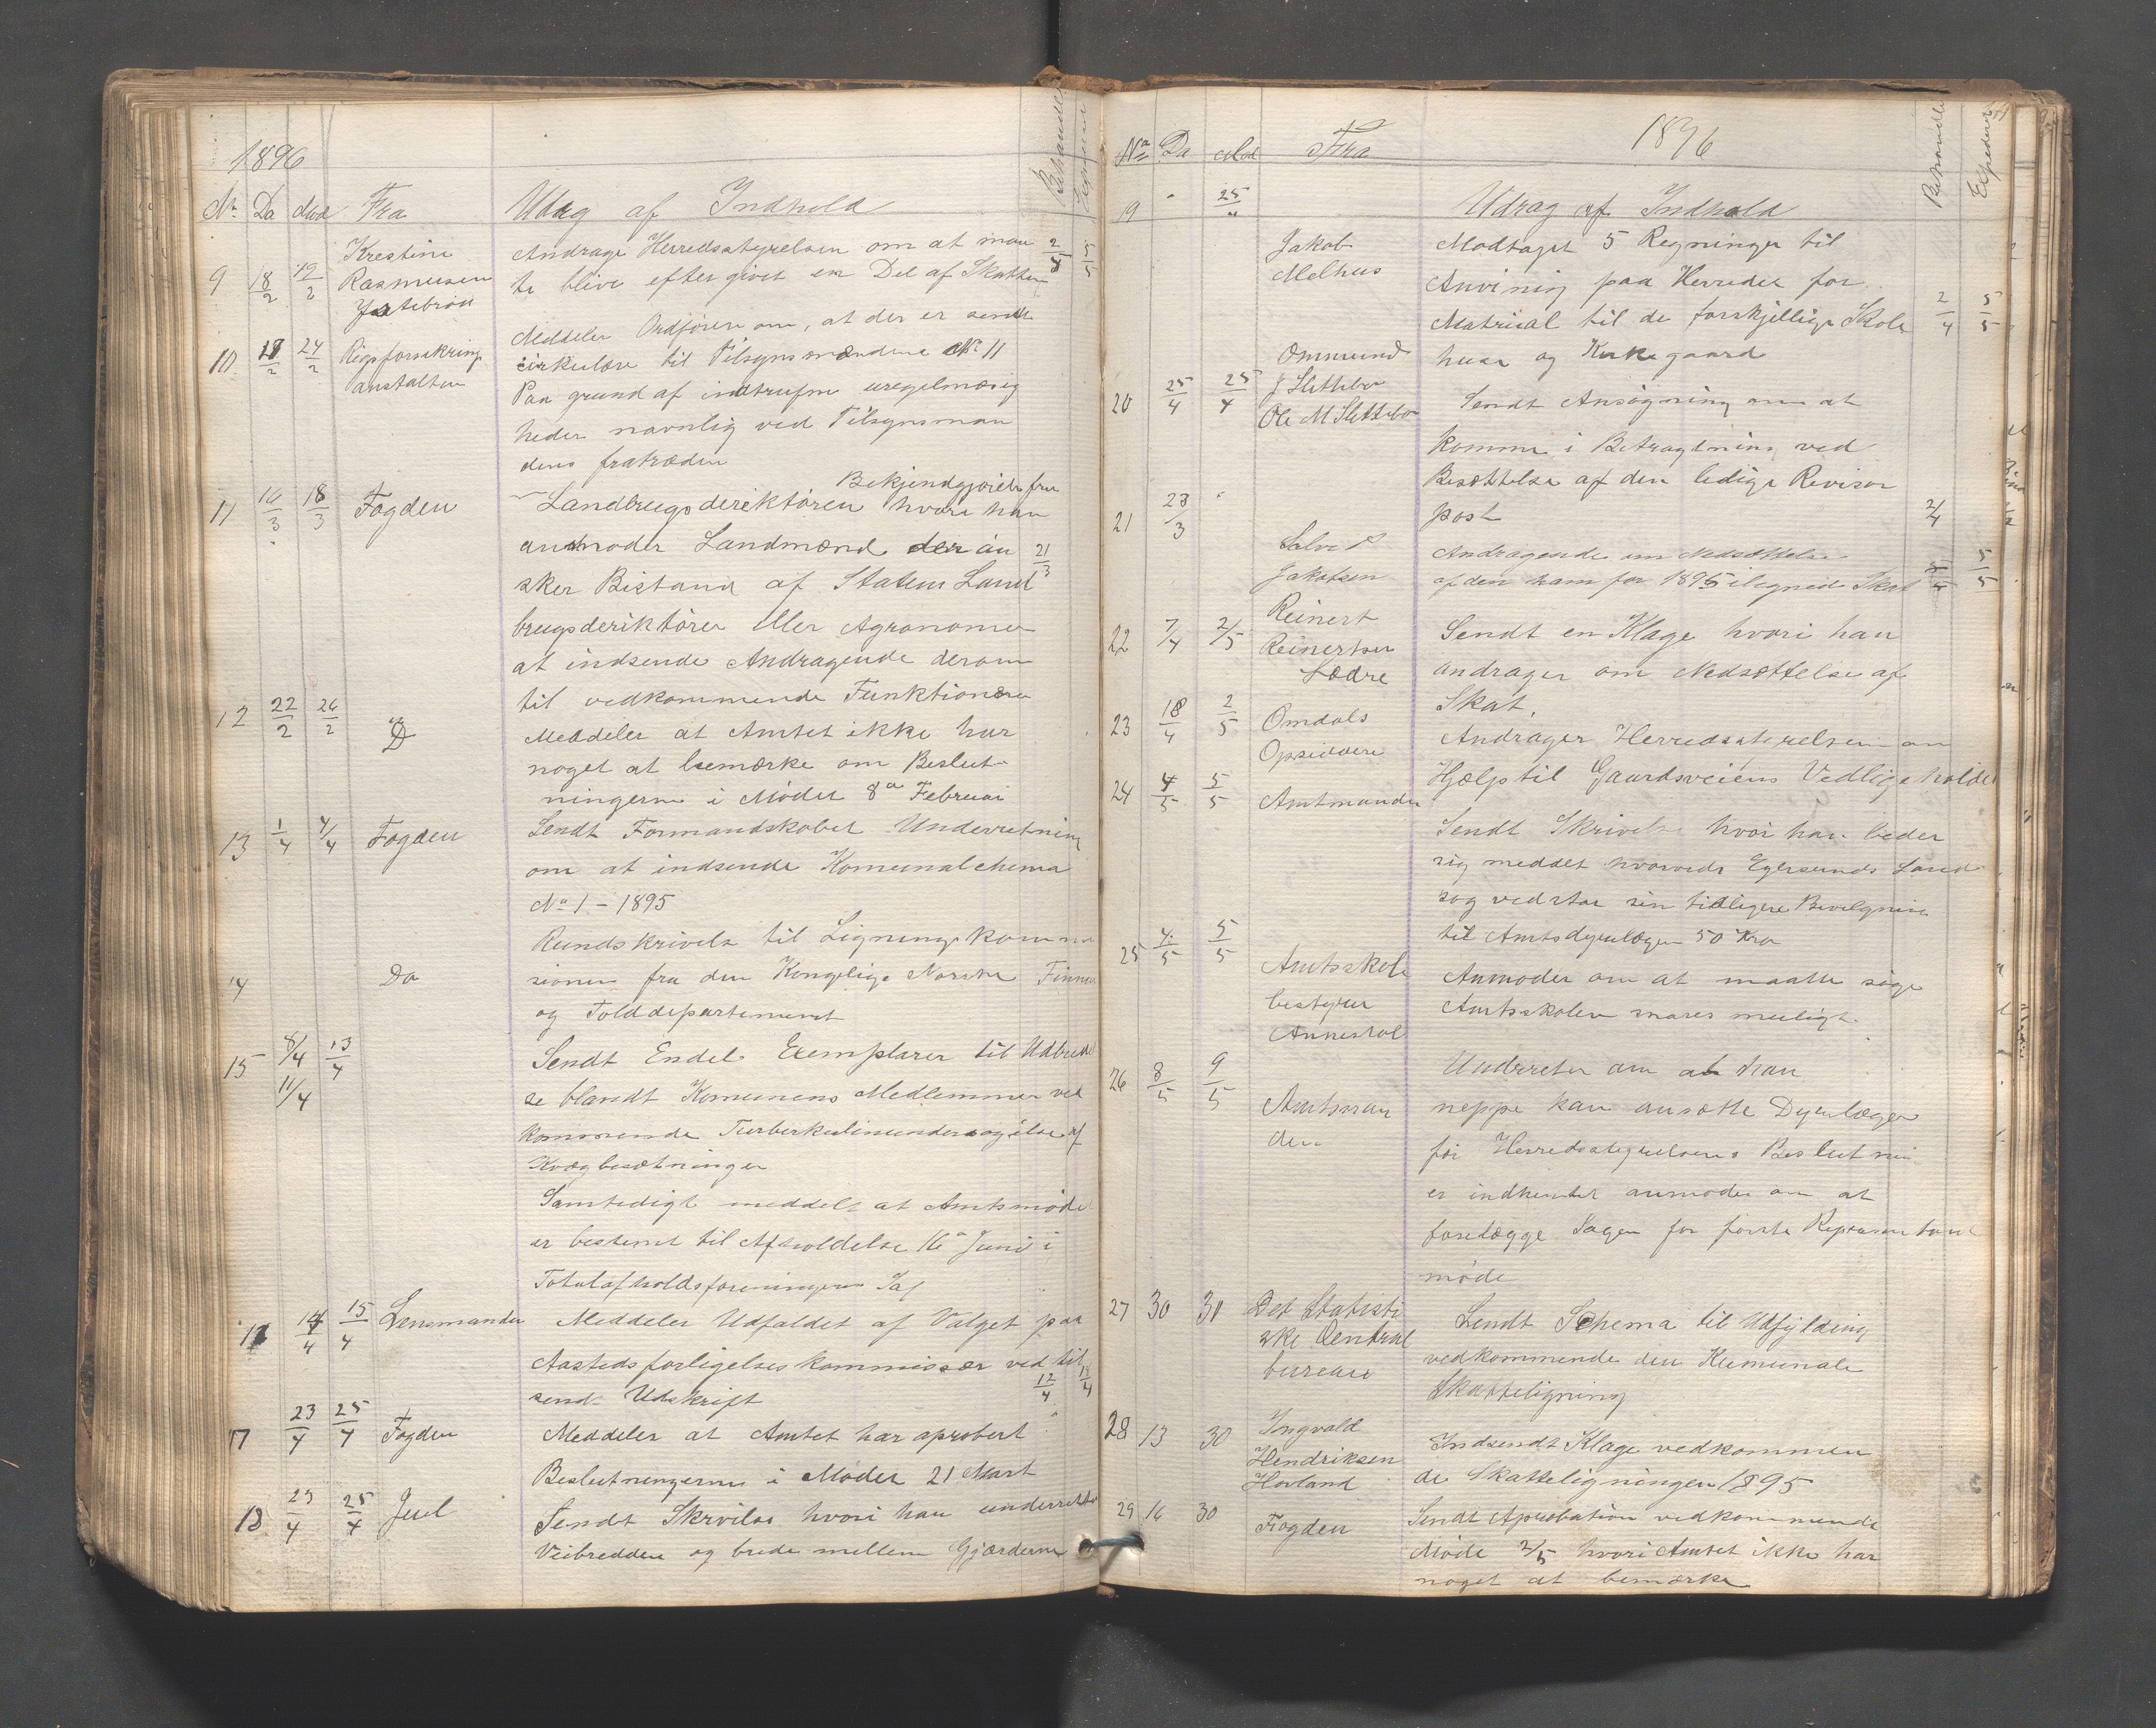 1896
No Da Mod Fra Udrag af Indhold Behandlet
9 18/2 19/2 Krestine Rasmusen
Andrage Herredsstyrelsen om at maa 2/4 5/5
te blive eftergivet en Del af Skatten
10 17/2 24/2 Rigsforsikrings anstalten
Meddeler Ordføren om, at der er sendt
cirkulære til Tilsynsmændene No 11
Paa grund af indtrufne uregelmæsig
heder navnlig ved Tilsynsman
dens fratræden
11 16/3 18/3 Fogden
Bekjendgjørelse fra
Landbrugsderiktøren hvori han
anmoder Landmænd der øn 21/3
sker Bistand af Statens Land
brugsderiktører eller Agronomer
at indsende Andragende derom
til vedkommende Funktionærer
12 22/2 26/2 Do
Meddeler at Amtet ikke har
noget at bemærke om Beslut-
ningerne i Mødet 8de Februar
13 1/4 4/4 Fogden
Sendt Formandskabet Underretning
om at indsende Komunalchema
No 1 - 1895
14 Do
Rundskrivelse til Ligningskommi
sionen fra den Kongelige Norske Finans
og Tolddepartement
15 8/4 13/4
11/4
Sendt Endel Exemplarer til Udbredel
se blandt Komunens Medlemmer ved
kommende Tuberkulinundersøgelse af
Kvægbesætninger
Samtidigt meddelt at Amtsmøde
er bestemt til Afholdelse 16de Juni i
Totalafholdsforeningens Sal
14/4 15/4 Lensmanden
Meddeler Udfaldet af Valget paa
Aastedsforligelseskommissær ved til
sendt Udskrift 12/4
17 23/4 25/4 Fogden
Meddeler at Amtet har aprobert
Beslutningerne i Mødet 21 Mart
18 23/4 25/4 Juel
Sendt Skrivelse hvori han underretter
Veibredden og brede mellem Gjærderne
No Da Mod Fra 1896
Udrag af Indhold Behandlet Expederet
19 25/4 Jakob Melhus
Modtaget 5 Regninger til
Anvisning paa Herredet for
Matrieal til de forskjellige Skole 2/4 5/5
huse og Kirkegaard
20 25/4 25/4 Ommund J Slettebø
Ole M Slettebø
Sendt Ansøgning om at
komme i Betragtning ved
Besættelse af den ledige Revisor
post 2/4
21 23/3 Salve P Jakobsen
Andragende om Nedsættelse
af den ham for 1895 ilignede Skat 5/5
22 7/4 2/5 Reinert Reinertsen
Sædre
Sendt en Klage hvori han
andrager om Nedsættelse af
Skat.
23 18/4 2/5 Omdals Opsiddere
Andrager Herredsstyrelsen om
Hjælp til Gaardsveiens Vedligehold
24 4/5 5/5 Amtmanden
Sendt Skrivelse hvori han beder
sig meddelt hvorvidt Egersunds Land
sog vedstaar sin tidligere Bevilgning
til Amtsdyrlægen 50 Kro
25 4/5 5/5 Amtsskole
bestyrer
Anmoder om at maatte søge
Amtsskolen snarest muligt.
26 8/5 9/5 Amtman
den
Underreter om at han
neppe kan ansætte Dyrlæger
før Herredsstyrelsens Beslutning
er indhentet anmoder om at
forelægge Sagen for første Repræsentant
møde
27 30 30 Det Statisti
ske Central
bureau
Sendt Schema til Udfylding
vedkommende den Kumunale
Skatteligning
28 13 30 Ingvald
Hendriksen
Hovland
Indsendt Klage vedkommen
de Skatteligningen 1895
29 16 30 Fogden
Sendt Aprobation vedkommende
Møde 2/5 hvori Amtet ikke har
noget at bemærke